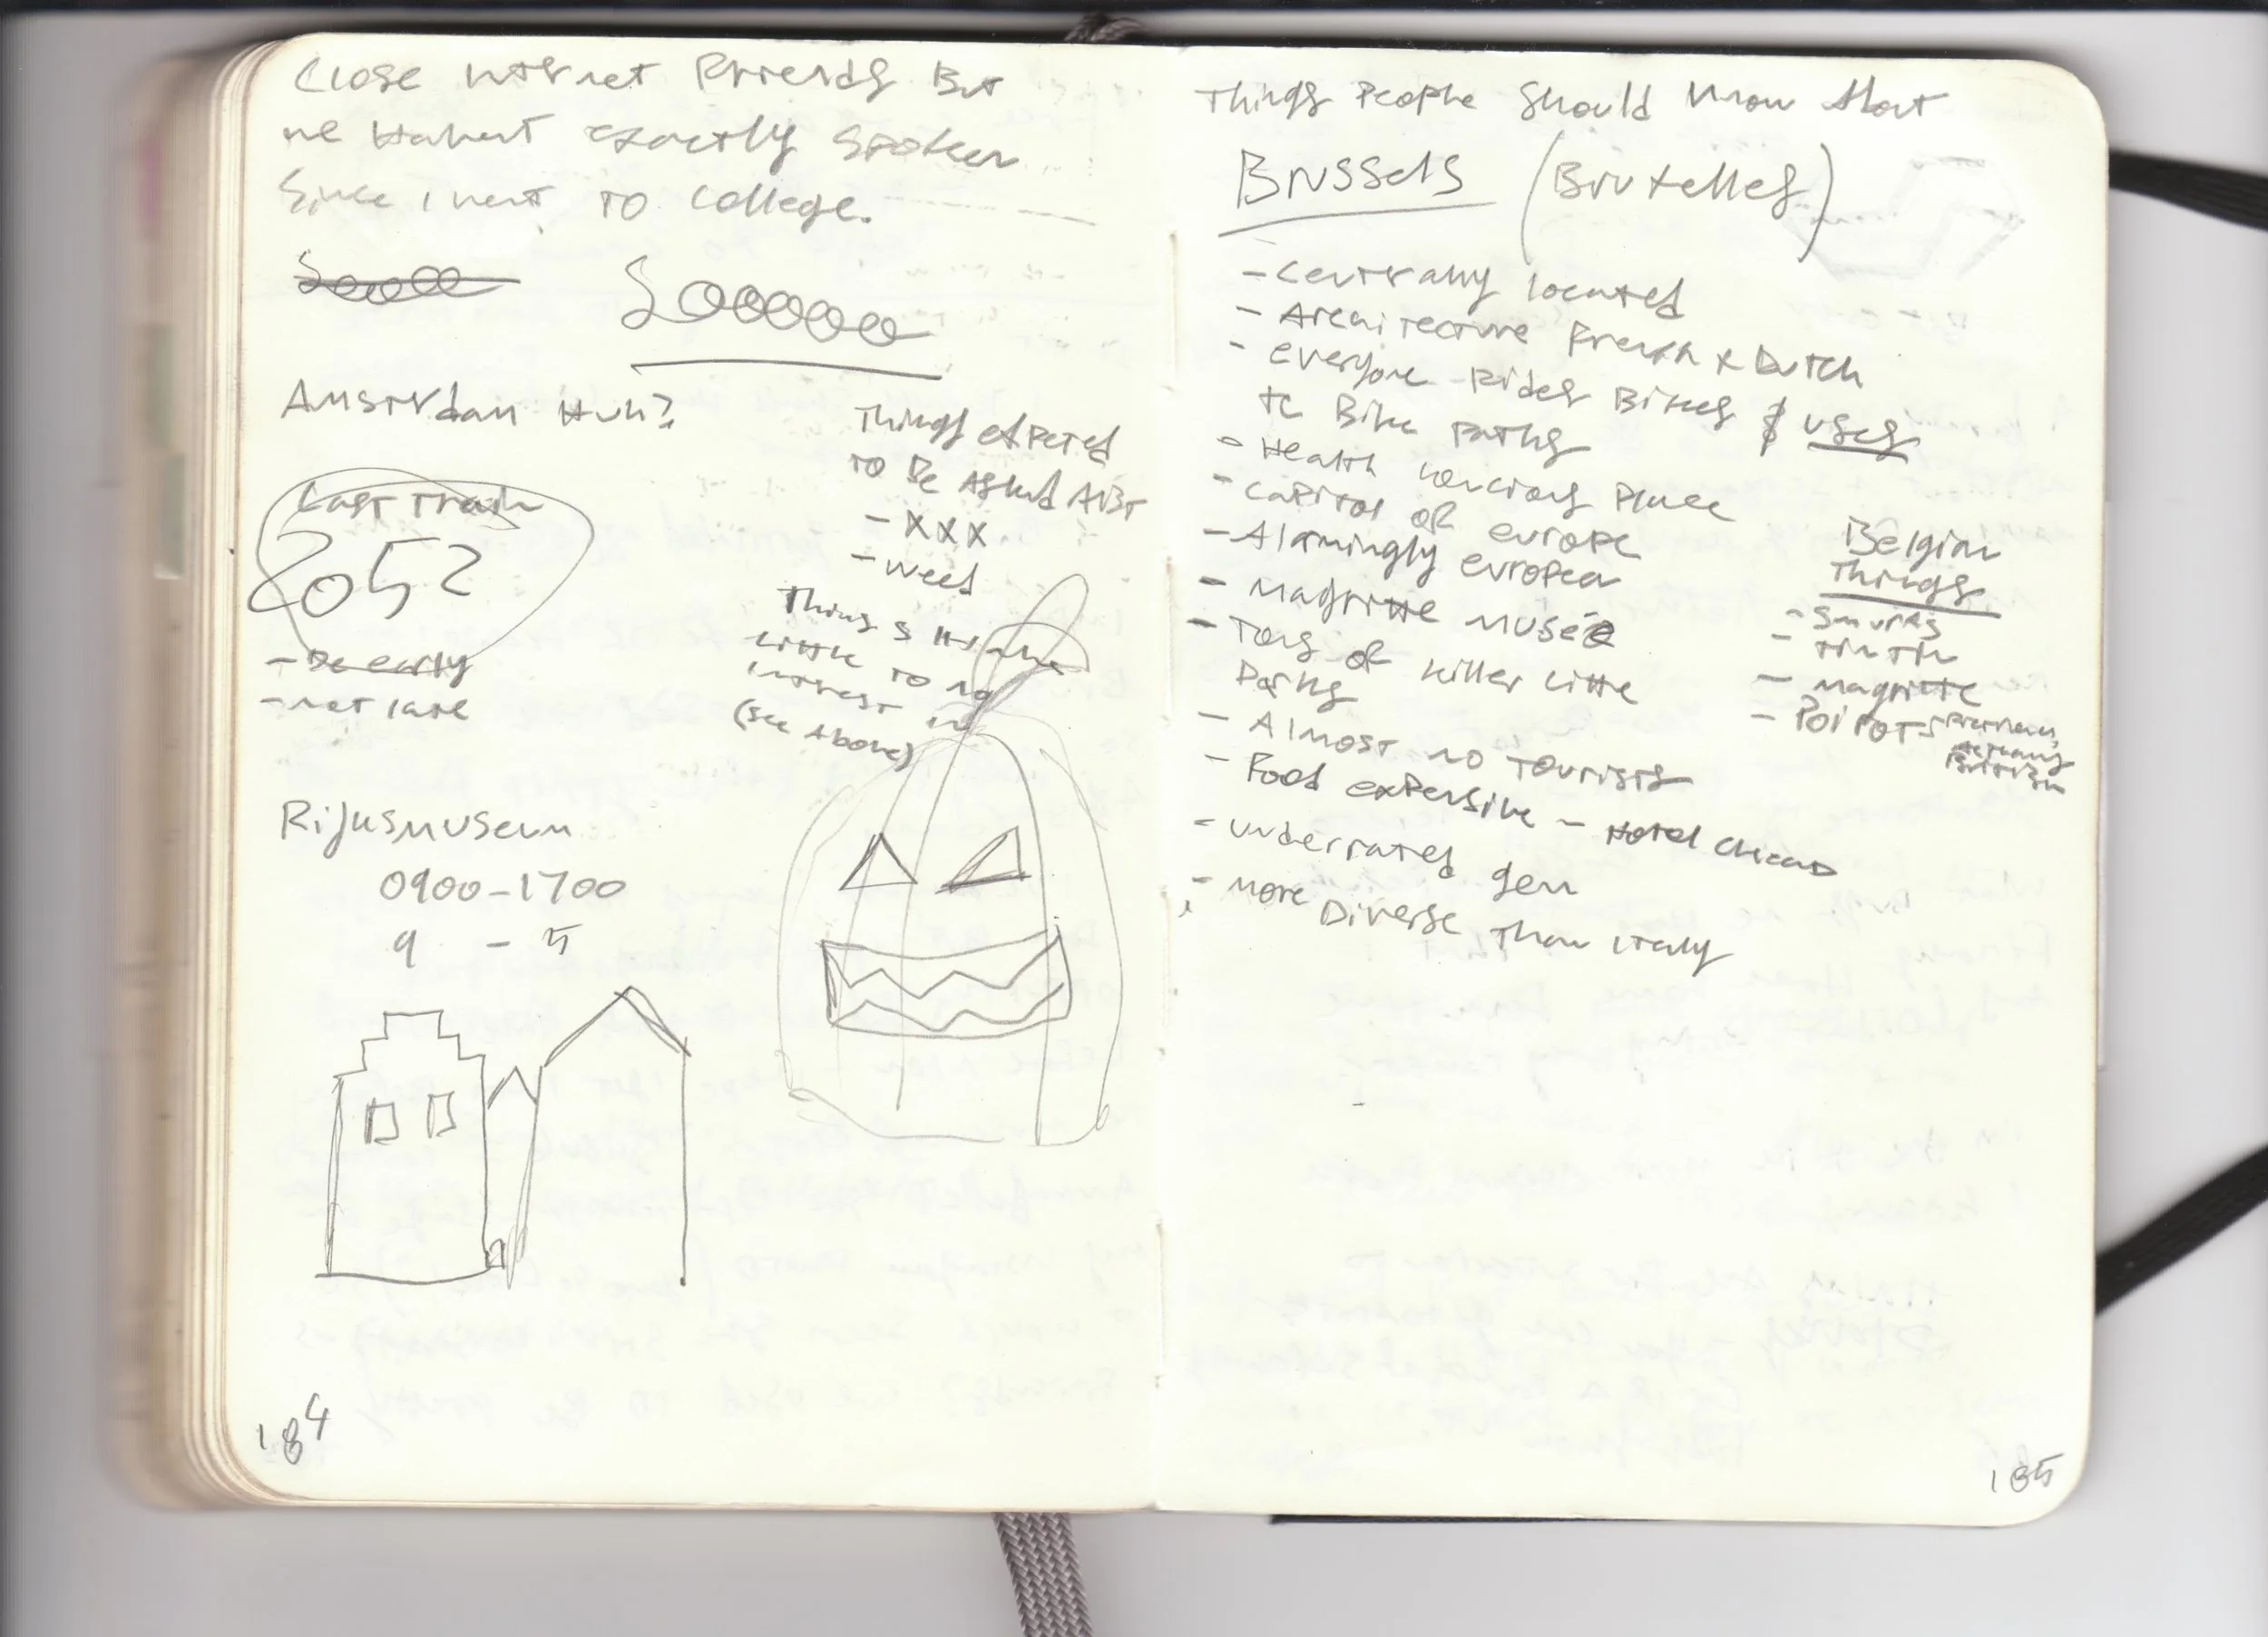 Close internet friends But
we Haven't exactly spoken
Since I went TO College.
Sooooo
Amsterdam Huh?
Things expected
to Be Asked Abt
- XXX
- weed
Last Train
2052
- Be early
- not late
Things I have
little to no
interest in
(see Above)
Rijksmuseum
0900-1700
9 - 5
184
Things People Should Know About
Brussels (Bruxelles)
- Centrally located
- Architecture French & Dutch
- everyone Rides Bikes & uses
Bike Paths
- Health Place
- Capitol of europe
- Alarmingly europea
- Magritte Musée
- Tons of killer little
Parks
- Almost no Tourists
- Food expensive - Hotel Cheap
- underrated gem
- More Diverse Than Italy
Belgian
Things
- Smurfs
- Tintin
- Magritte
- Poirot
185